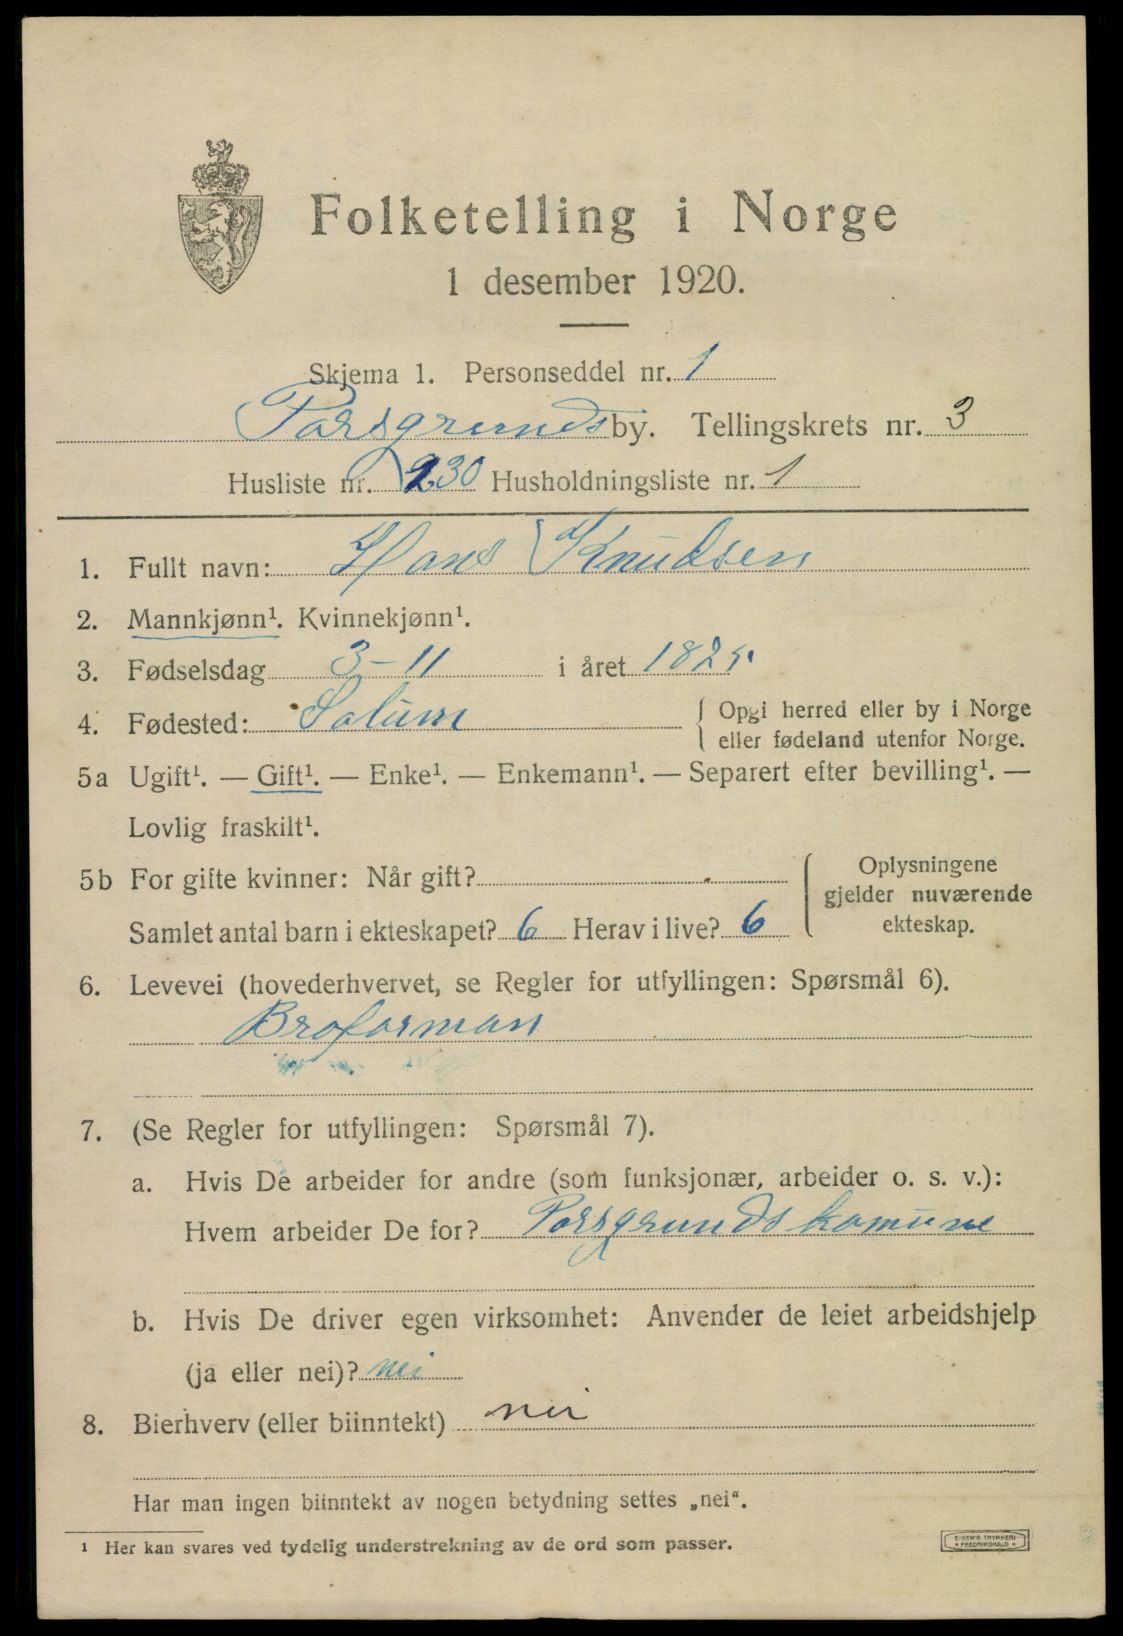 Folketelling i Norge
1 desember 1920.
Skjema 1. Personseddel nr. 1
Porsgrunds by. Tellingskrets nr. 3
Husliste nr. 230 Husholdningsliste nr. 1
1. Fullt navn: Hans Knudsen
2. Mannkjønn¹. Kvinnekjønn¹.
3. Fødselsdag 3-11 i året
4. Fødested: Solum { Opgi herred eller by i Norge
eller fødeland utenfor Norge.
5a Ugift¹. — Gift¹. — Enke¹. — Enkemann¹. — Separert efter bevilling¹. —
Lovlig fraskilt¹.
5b For gifte kvinner: Når gift? { Oplysningene
gjelder nuværende
Samlet antal barn i ekteskapet? 6 Herav i live? 6 ekteskap.
6. Levevei (hovederhvervet, se Regler for utfyllingen: Spørsmål 6).
Broforman
7. (Se Regler for utfyllingen: Spørsmål 7).
a. Hvis De arbeider for andre (som funksjonær, arbeider o. s. v.):
Hvem arbeider De for? Porsgrunds komune
b. Hvis De driver egen virksomhet: Anvender de leiet arbeidshjelp
(ja eller nei)? nei
8. Bierhverv (eller biinntekt) nei
Har man ingen biinntekt av nogen betydning settes „nei“.
¹ Her kan svares ved tydelig understrekning av de ord som passer.
E. SEM'S TRYKKERI
• FREDRIKSHALD •